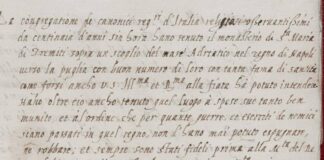 La congregatione de canonici reg.ri d'Italia religiosi osservantissimi
da centinaia d'anni sin hora hano tenuto il monasterio di S.ta Maria
di Tremiti sopra un scoglio del mare Adriatico nel regno di Napoli
verso la puglia con buon numero di loro con tanta fama di santità
come forsi ancho V.S. Ill.ma et R.ma alla fiate ha potuto intendere
hano oltre ciò ancho tenuto quel luogo à spese sue tanto ben
munito, et al ordine, che per quante guerre, et esserciti de nemici
siano passati in quel regno, non l'hano mai potuto espugnare,
ne robbare; et sempre sono stati fideli prima alla M.tà del